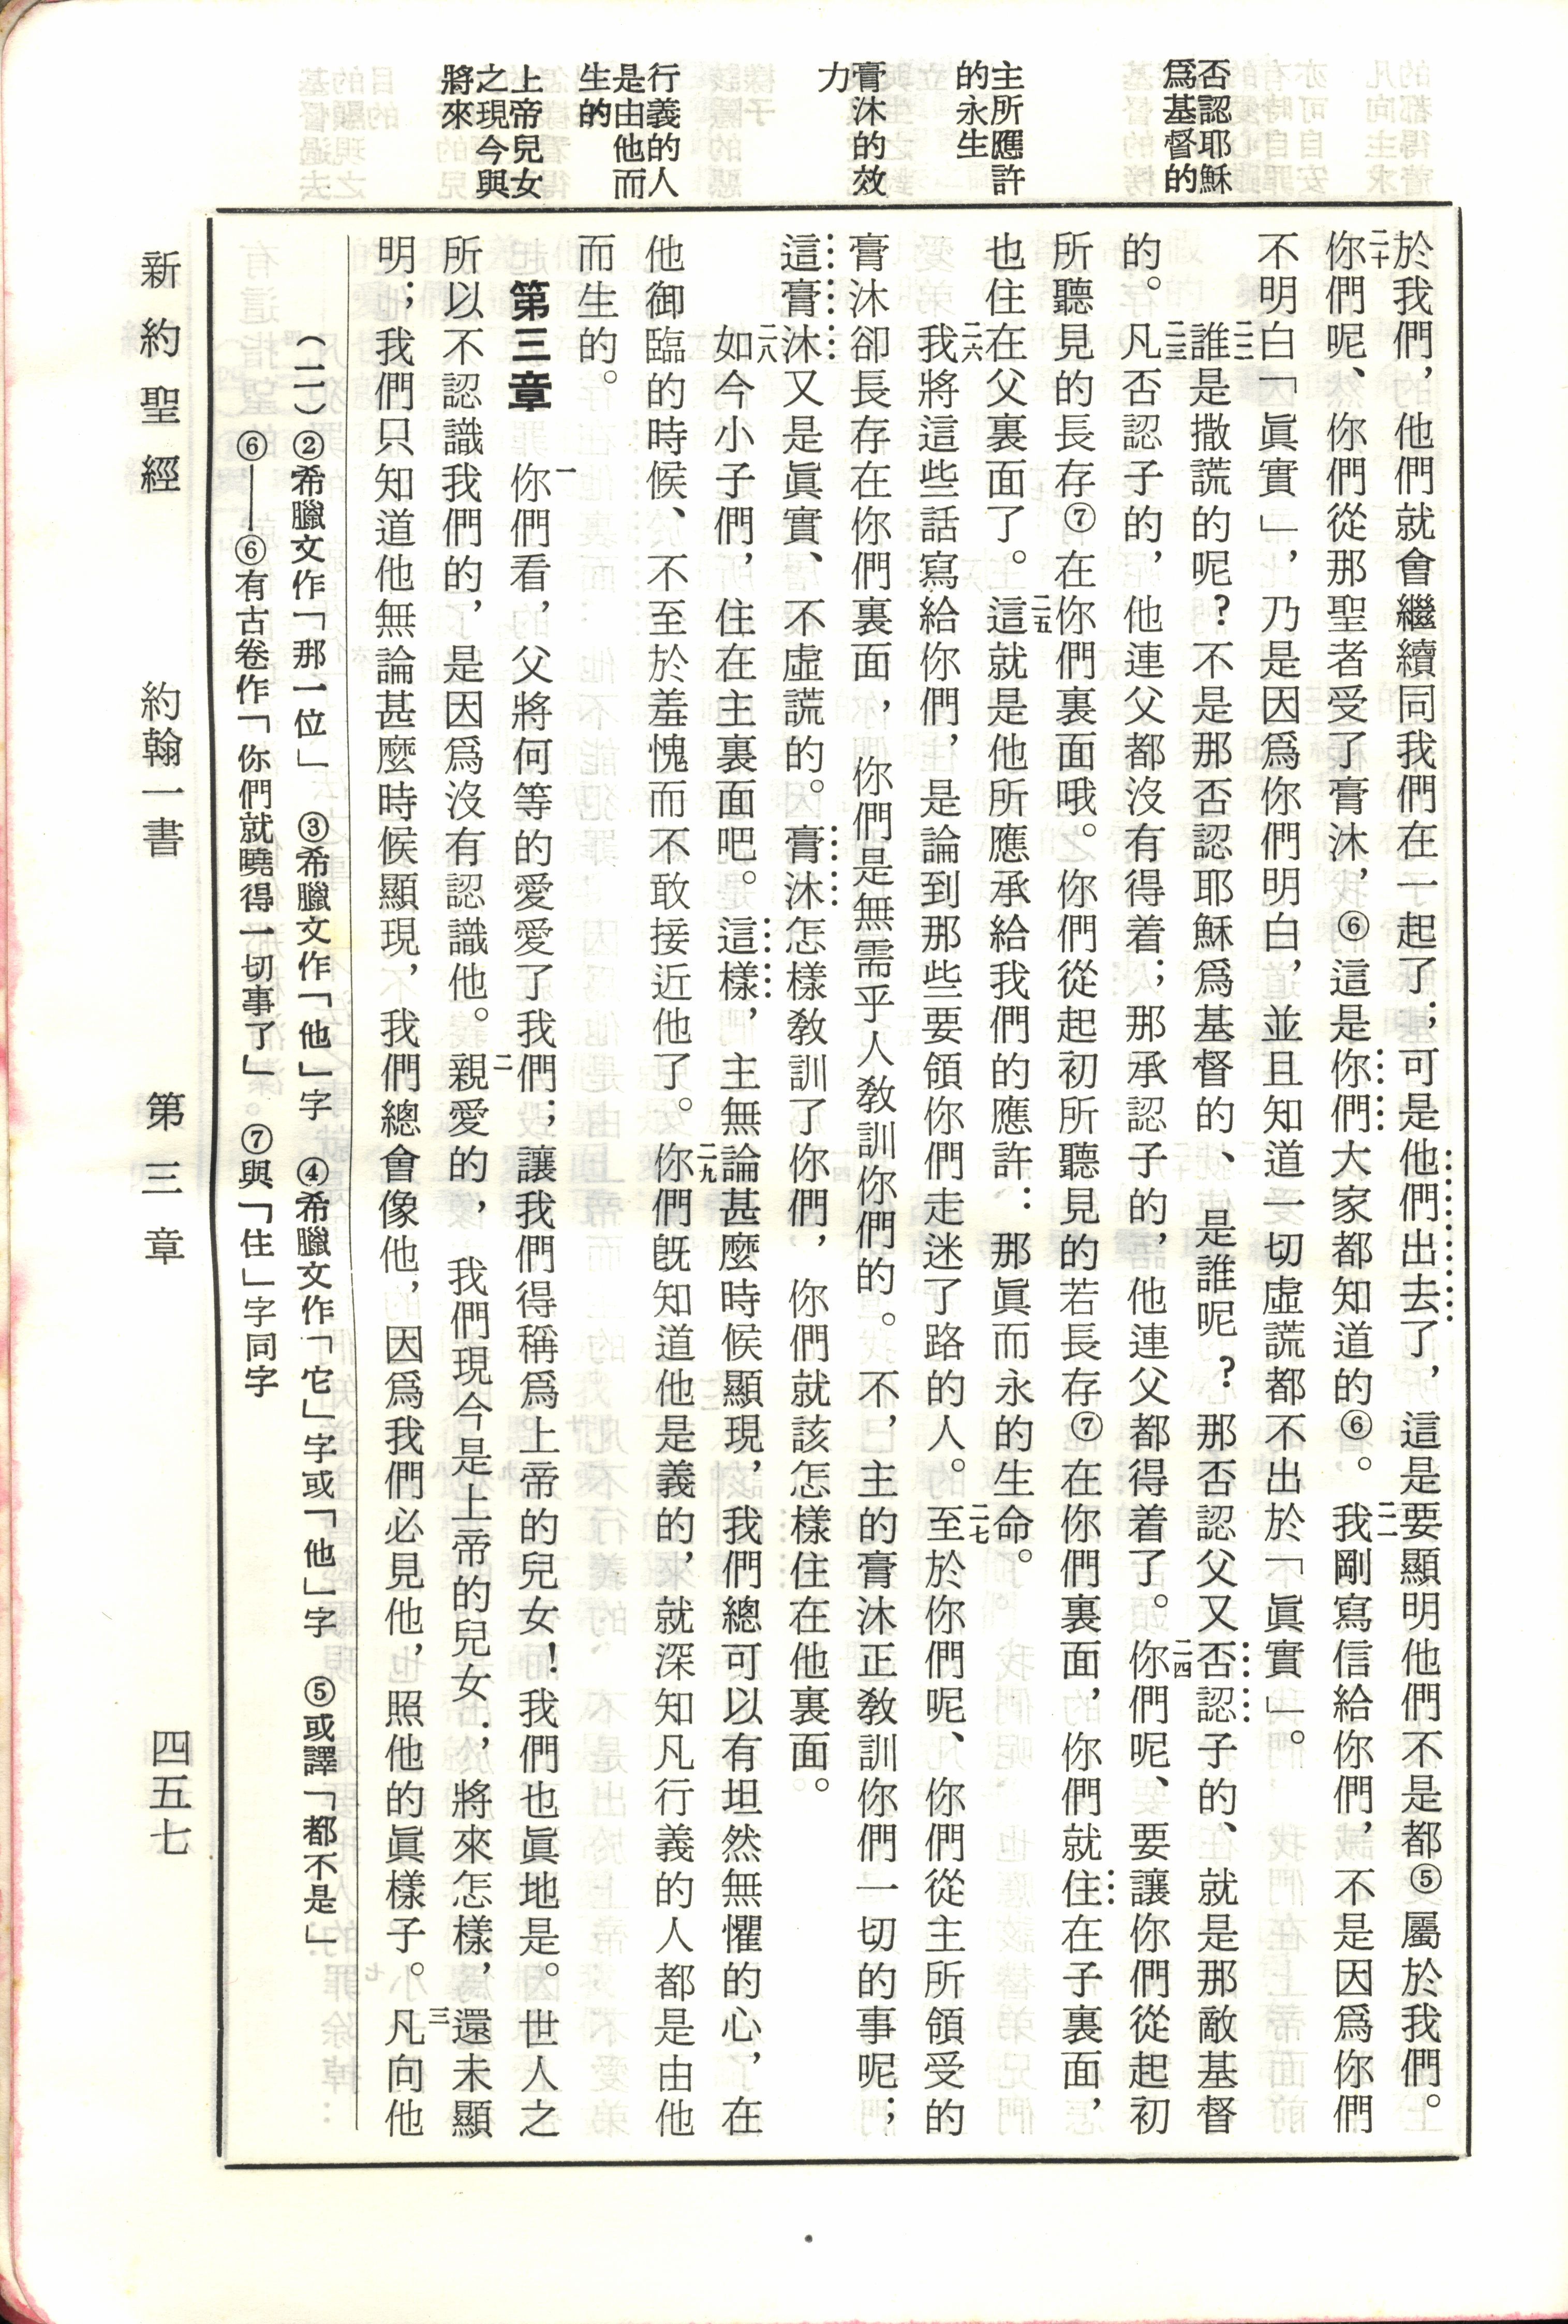 否認耶穌
爲基督的
主所應許
的永生
膏沐的效
力
行義的人
是由他而
生的
上帝兒女
之現今與
將來
於我們，他們就會繼續同我們在一起了；可是他們出去了，這是要顯明他們不是都⑤屬於我們。
二十你們呢、你們從那聖者受了膏沐，⑥這是你們大家都知道的⑥。二一我剛寫信給你們，不是因爲你們
不明白「眞實」，乃是因爲你們明白，並且知道一切虛謊都不出於「眞實」。
二二誰是撒謊的呢？不是那否認耶穌爲基督的、是誰呢？那否認父又否認子的、就是那敵基督
的。二三凡否認子的，他連父都沒有得着；那承認子的，他連父都得着了。二四你們呢、要讓你們從起初
所聽見的長存⑦在你們裏面哦。你們從起初所聽見的若長存⑦在你們裏面，你們就住在子裏面，
也住在父裏面了。二五這就是他所應承給我們的應許：那眞而永的生命。
二六我將這些話寫給你們，是論到那些要領你們走迷了路的人。二七至於你們呢、你們從主所領受的
膏沐卻長存在你們裏面，你們是無需乎人敎訓你們的。不，主的膏沐正敎訓你們一切的事呢；
這膏沐又是眞實、不虛謊的。膏沐怎樣敎訓了你們，你們就該怎樣住在他裏面。
二八如今小子們，住在主裏面吧。這樣，主無論甚麼時候顯現，我們總可以有坦然無懼的心，在
他御臨的時候、不至於羞愧而不敢接近他了。二九你們旣知道他是義的，就深知凡行義的人都是由他
而生的。
第三章　一你們看，父將何等的愛愛了我們；讓我們得稱爲上帝的兒女！我們也眞地是。因世人之
所以不認識我們的，是因爲沒有認識他。二親愛的，我們現今是上帝的兒女；將來怎樣，還未顯
明；我們只知道他無論甚麼時候顯現，我們總會像他，因爲我們必見他，照他的眞樣子。三凡向他
（二）②希臘文作「那一位」　③希臘文作「他」字　④希臘文作「它」字或「他」字　⑤或譯「都不是」
⑥——⑥有古卷作「你們就曉得一切事了」　⑦與「住」字同字
新約聖經　約翰一書　第三章　四五七